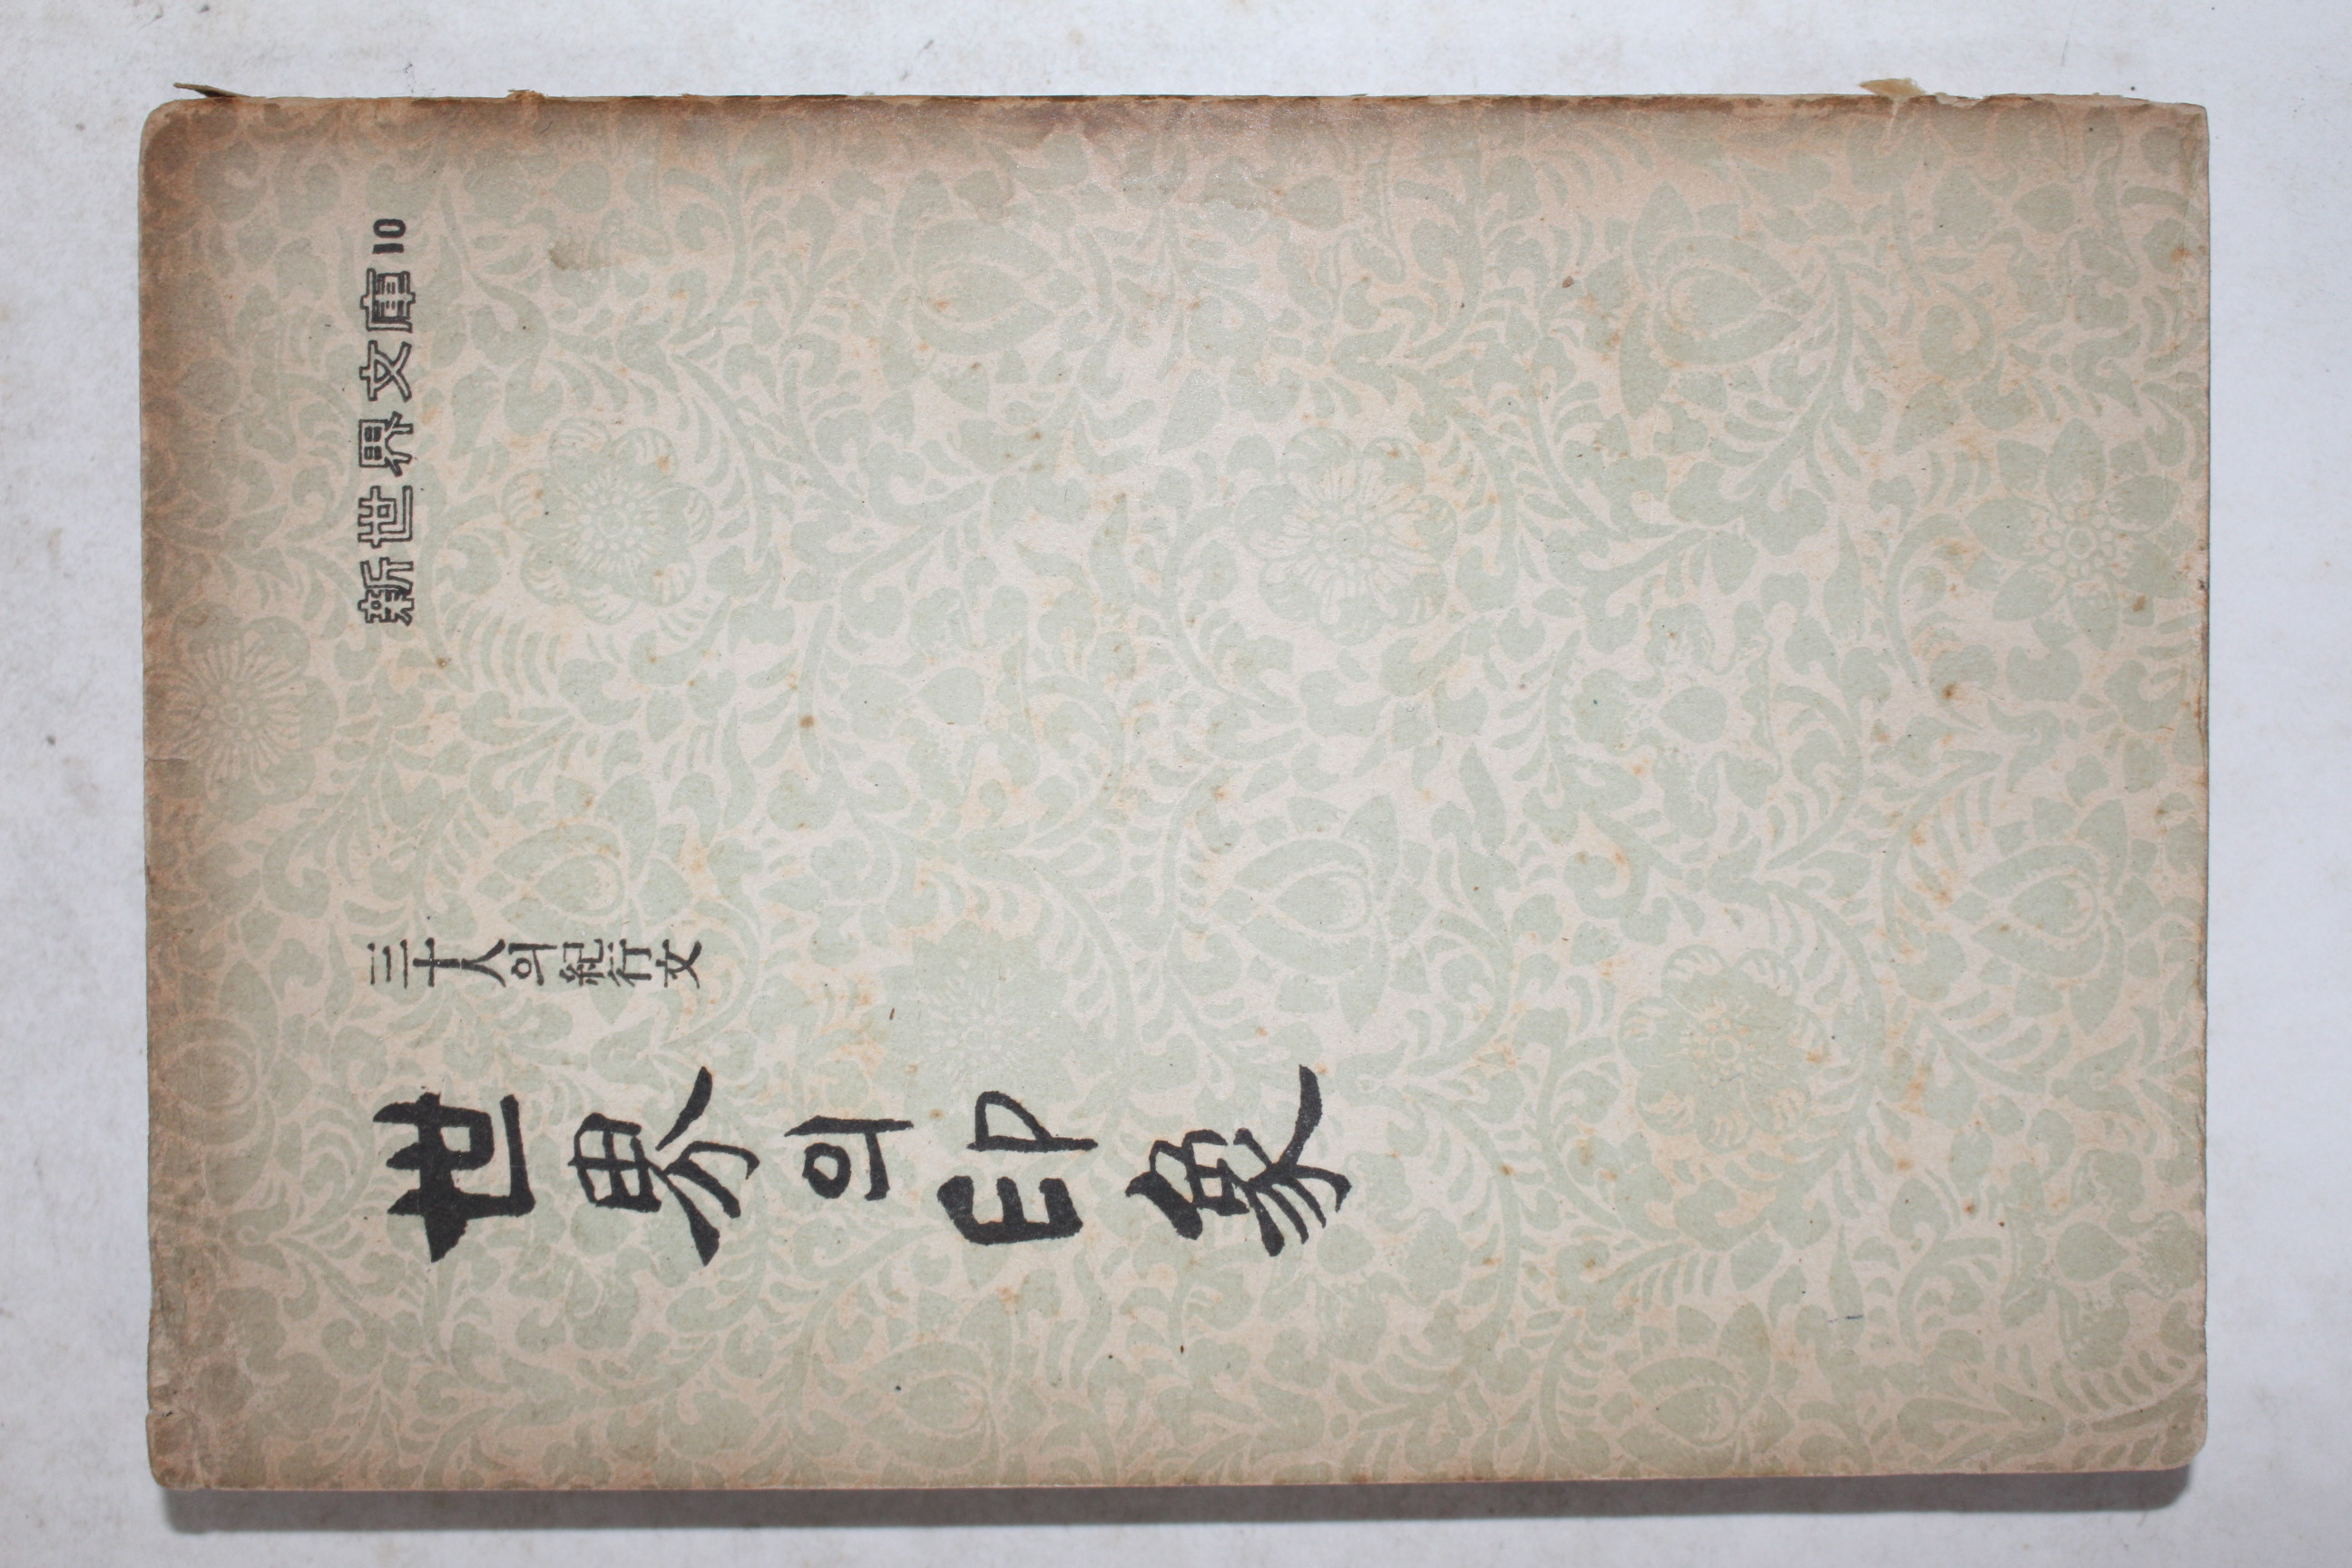 新世界文庫10
三十人의紀行文
世界의印象